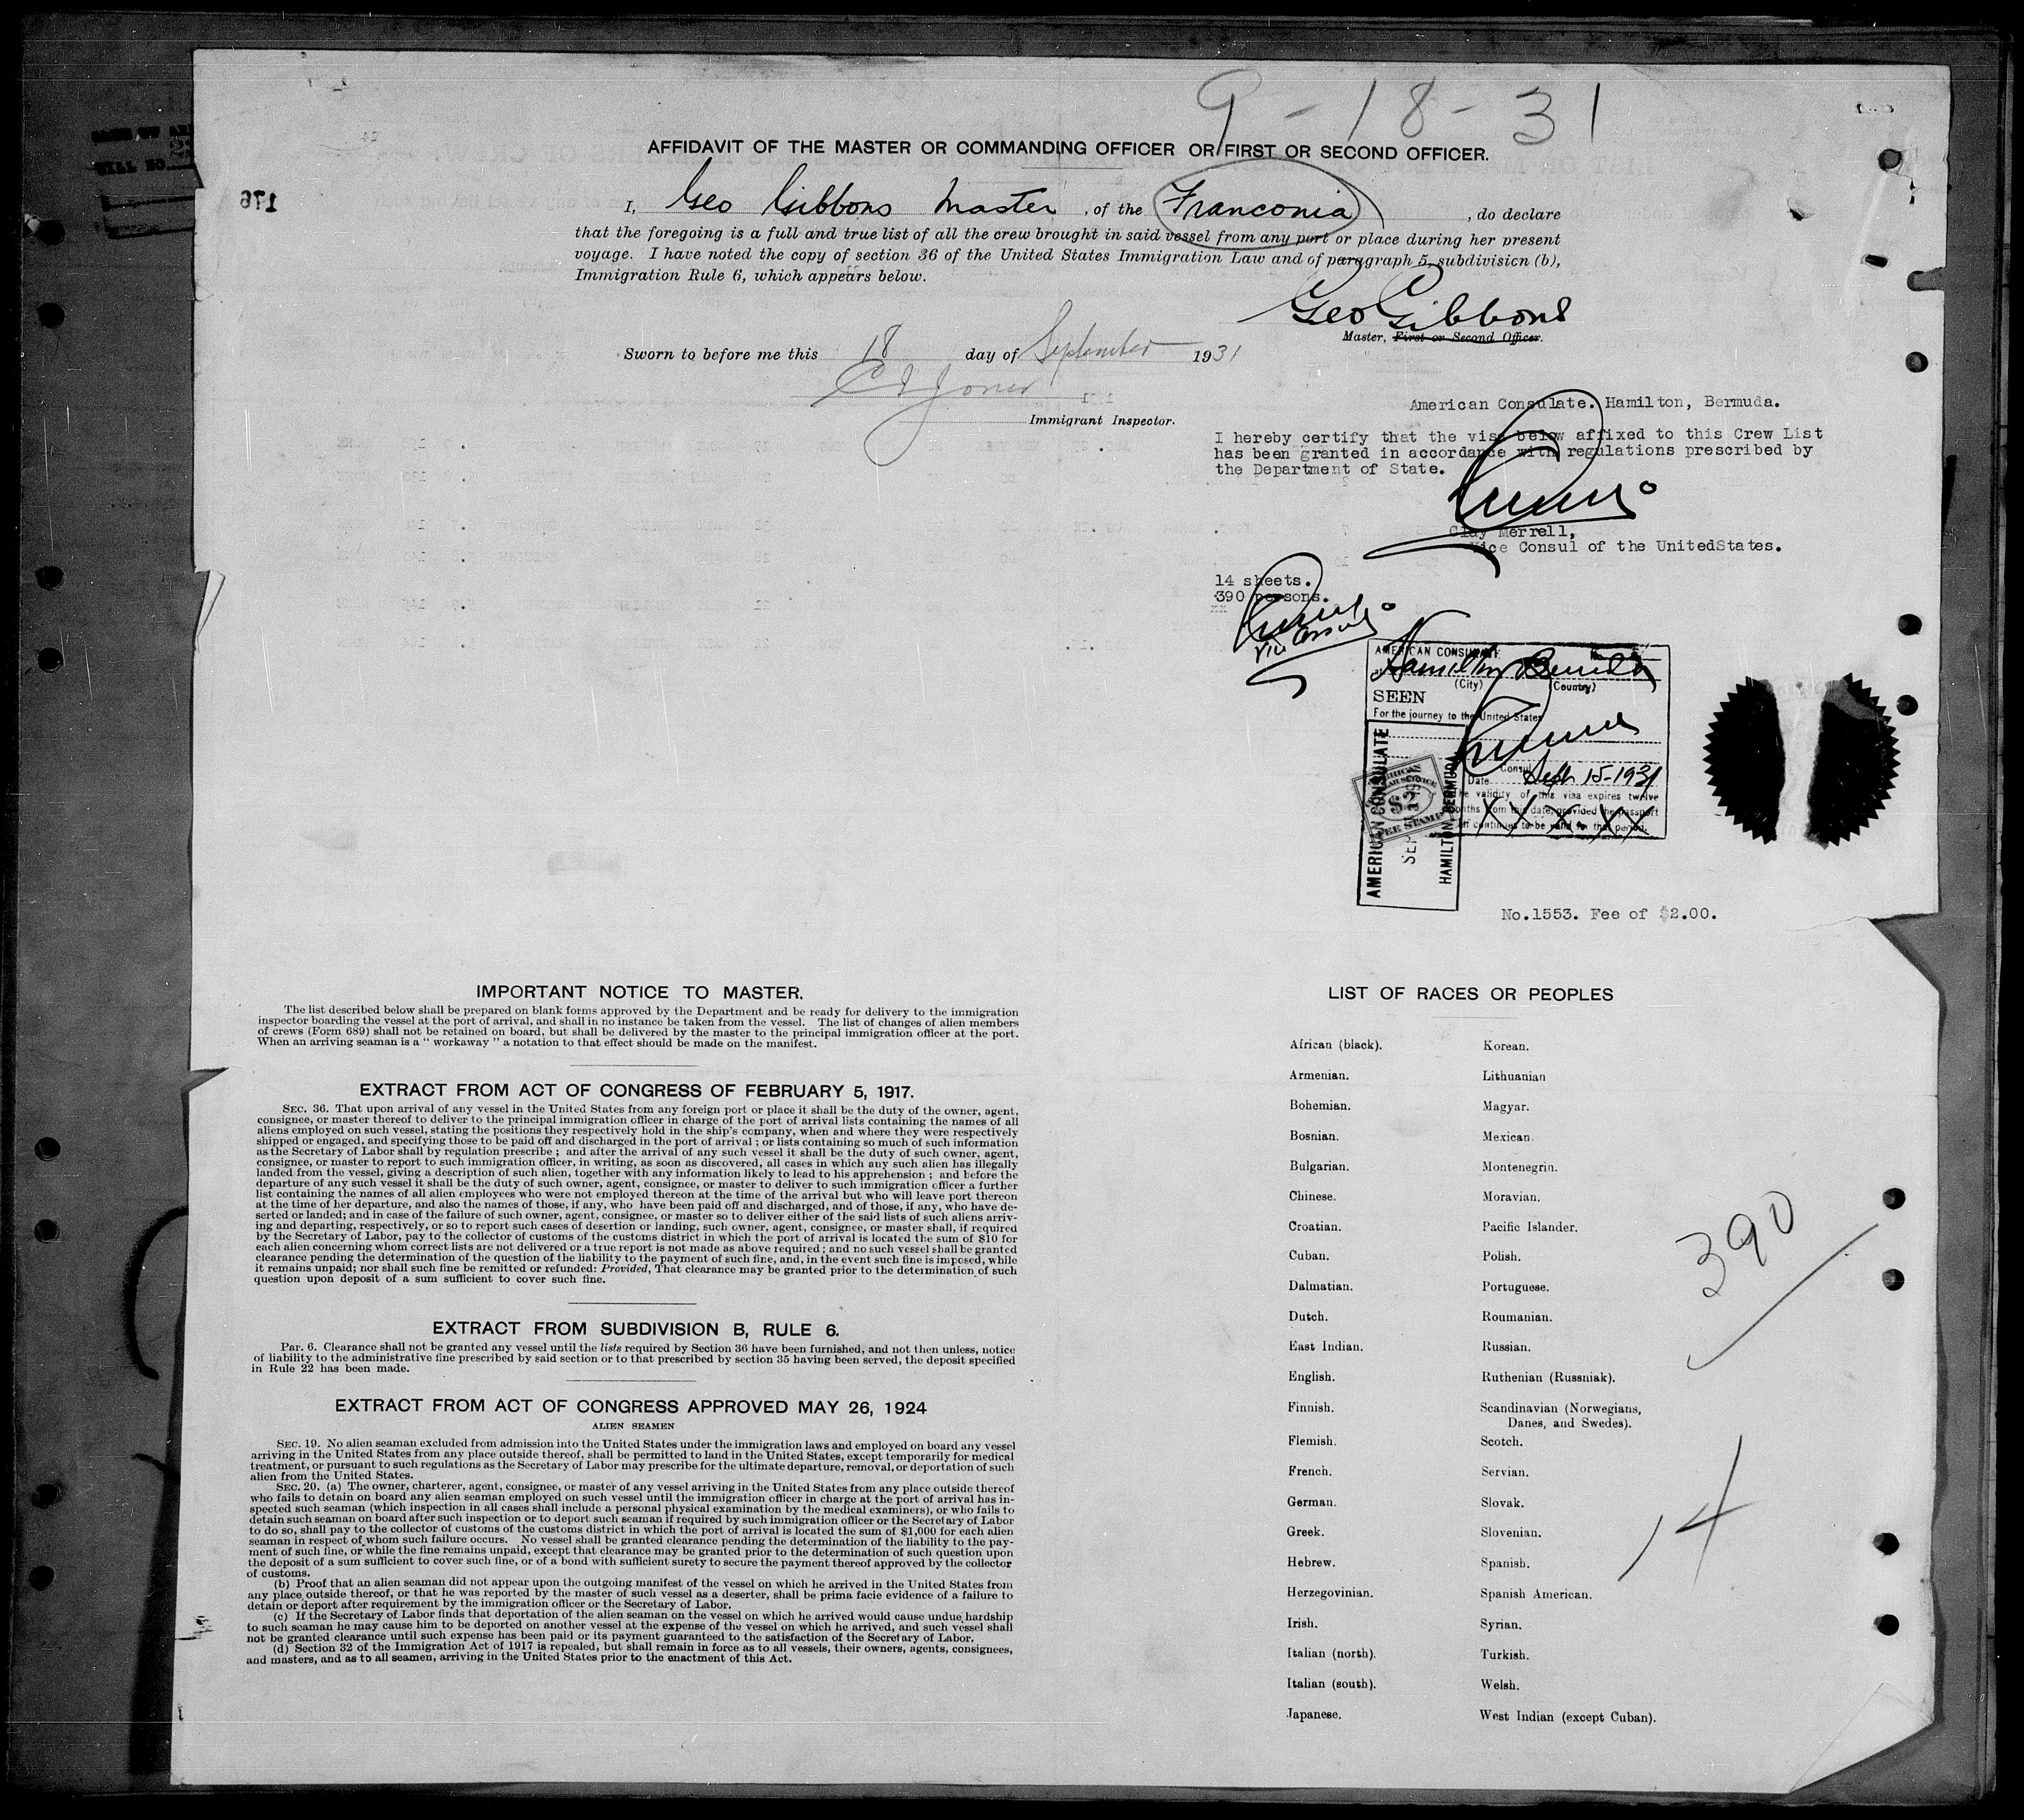 9-18-31
AFFIDAVIT OF THE MASTER OR COMMANDING OFFICER OR FIRST OR SECOND OFFICER.
176
I, Geo Gibbons Master, of the Franconia, do declare
that the foregoing is a full and true list of all the crew brought in said vessel from any port or place during her present
voyage. I have noted the copy of section 36 of the United States Immigration Law and of paragraph 5, subdivision (b),
Immigration Rule 6, which appears below.
Geo Gibbons
Master, First or Second Officer.
Sworn to before me this 18 day of September 1931
Jones
Immigrant Inspector.
American Consulate. Hamilton, Bermuda.
I hereby certify that the visa below affixed to this Crew List
has been granted in accordance with regulations prescribed by
the Department of State.
Clay Merrell,
Vice Consul of the UnitedStates.
14 sheets.
390 persons.
Vice Consul
AMERICAN CONSULATE
Hamilton Bermuda
(City) (Country)
SEEN
For the journey to the United States
Consul
Date Sept 15-1931
The validity of this visa expires twelve
months from this date, provided the passport
continues to be valid for that period.
XX XXXX
AMERICAN CONSULATE
SEP
HAMILTON, BERMUDA
AMERICAN
$2
FEE STAMP
No.1553. Fee of $2.00.
IMPORTANT NOTICE TO MASTER.
The list described below shall be prepared on blank forms approved by the Department and be ready for delivery to the immigration
inspector boarding the vessel at the port of arrival, and shall in no instance be taken from the vessel. The list of changes of alien members
of crews (Form 689) shall not be retained on board, but shall be delivered by the master to the principal immigration officer at the port.
When an arriving seaman is a " workaway " a notation to that effect should be made on the manifest.
EXTRACT FROM ACT OF CONGRESS OF FEBRUARY 5, 1917.
SEC. 36. That upon arrival of any vessel in the United States from any foreign port or place it shall be the duty of the owner, agent,
consignee, or master thereof to deliver to the principal immigration officer in charge of the port of arrival lists containing the names of all
aliens employed on such vessel, stating the positions they respectively hold in the ship's company, when and where they were respectively
shipped or engaged, and specifying those to be paid off and discharged in the port of arrival ; or lists containing so much of such information
as the Secretary of Labor shall by regulation prescribe ; and after the arrival of any such vessel it shall be the duty of such owner, agent,
consignee, or master to report to such immigration officer, in writing, as soon as discovered, all cases in which any such alien has illegally
landed from the vessel, giving a description of such alien, together with any information likely to lead to his apprehension ; and before the
departure of any such vessel it shall be the duty of such owner, agent, consignee, or master to deliver to such immigration officer a further
list containing the names of all alien employees who were not employed thereon at the time of the arrival but who will leave port thereon
at the time of her departure, and also the names of those, if any, who have been paid off and discharged, and of those, if any, who have de-
serted or landed; and in case of the failure of such owner, agent, consignee, or master so to deliver either of the said lists of such aliens arriv-
ing and departing, respectively, or so to report such cases of desertion or landing, such owner, agent, consignee, or master shall, if required
by the Secretary of Labor, pay to the collector of customs of the customs district in which the port of arrival is located the sum of $10 for
each alien concerning whom correct lists are not delivered or a true report is not made as above required ; and no such vessel shall be granted
clearance pending the determination of the question of the liability to the payment of such fine, and, in the event such fine is imposed, while
it remains unpaid; nor shall such fine be remitted or refunded: Provided, That clearance may be granted prior to the determination of such
question upon deposit of a sum sufficient to cover such fine.
EXTRACT FROM SUBDIVISION B, RULE 6.
Par. 6. Clearance shall not be granted any vessel until the lists required by Section 36 have been furnished, and not then unless, notice
of liability to the administrative fine prescribed by said section or to that prescribed by section 35 having been served, the deposit specified
in Rule 22 has been made.
EXTRACT FROM ACT OF CONGRESS APPROVED MAY 26, 1924
ALIEN SEAMEN
SEC. 19. No alien seaman excluded from admission into the United States under the immigration laws and employed on board any vessel
arriving in the United States from any place outside thereof, shall be permitted to land in the United States, except temporarily for medical
treatment, or pursuant to such regulations as the Secretary of Labor may prescribe for the ultimate departure, removal, or deportation of such
alien from the United States.
SEC. 20. (a) The owner, charterer, agent, consignee, or master of any vessel arriving in the United States from any place outside thereof
who fails to detain on board any alien seaman employed on such vessel until the immigration officer in charge at the port of arrival has in-
spected such seaman (which inspection in all cases shall include a personal physical examination by the medical examiners), or who fails to
detain such seaman on board after such inspection or to deport such seaman if required by such immigration officer or the Secretary of Labor
to do so, shall pay to the collector of customs of the customs district in which the port of arrival is located the sum of $1,000 for each alien
seaman in respect of whom such failure occurs. No vessel shall be granted clearance pending the determination of the liability to the pay-
ment of such fine, or while the fine remains unpaid, except that clearance may be granted prior to the determination of such question upon
the deposit of a sum sufficient to cover such fine, or of a bond with sufficient surety to secure the payment thereof approved by the collector
of customs.
(b) Proof that an alien seaman did not appear upon the outgoing manifest of the vessel on which he arrived in the United States from
any place outside thereof, or that he was reported by the master of such vessel as a deserter, shall be prima facie evidence of a failure to
detain or deport after requirement by the immigration officer or the Secretary of Labor.
(c) If the Secretary of Labor finds that deportation of the alien seaman on the vessel on which he arrived would cause undue hardship
to such seaman he may cause him to be deported on another vessel at the expense of the vessel on which he arrived, and such vessel shall
not be granted clearance until such expense has been paid or its payment guaranteed to the satisfaction of the Secretary of Labor.
(d) Section 32 of the Immigration Act of 1917 is repealed, but shall remain in force as to all vessels, their owners, agents, consignees,
and masters, and as to all seamen, arriving in the United States prior to the enactment of this Act.
LIST OF RACES OR PEOPLES
African (black). Korean.
Armenian. Lithuanian
Bohemian. Magyar.
Bosnian. Mexican.
Bulgarian. Montenegrin.
Chinese. Moravian.
Croatian. Pacific Islander.
Cuban. Polish.
Dalmatian. Portuguese.
Dutch. Roumanian.
East Indian. Russian.
English. Ruthenian (Russniak).
Finnish. Scandinavian (Norwegians,
Danes, and Swedes).
Flemish. Scotch.
French. Servian.
German. Slovak.
Greek. Slovenian.
Hebrew. Spanish.
Herzegovinian. Spanish American.
Irish. Syrian.
Italian (north). Turkish.
Italian (south). Welsh.
Japanese. West Indian (except Cuban).
390
14